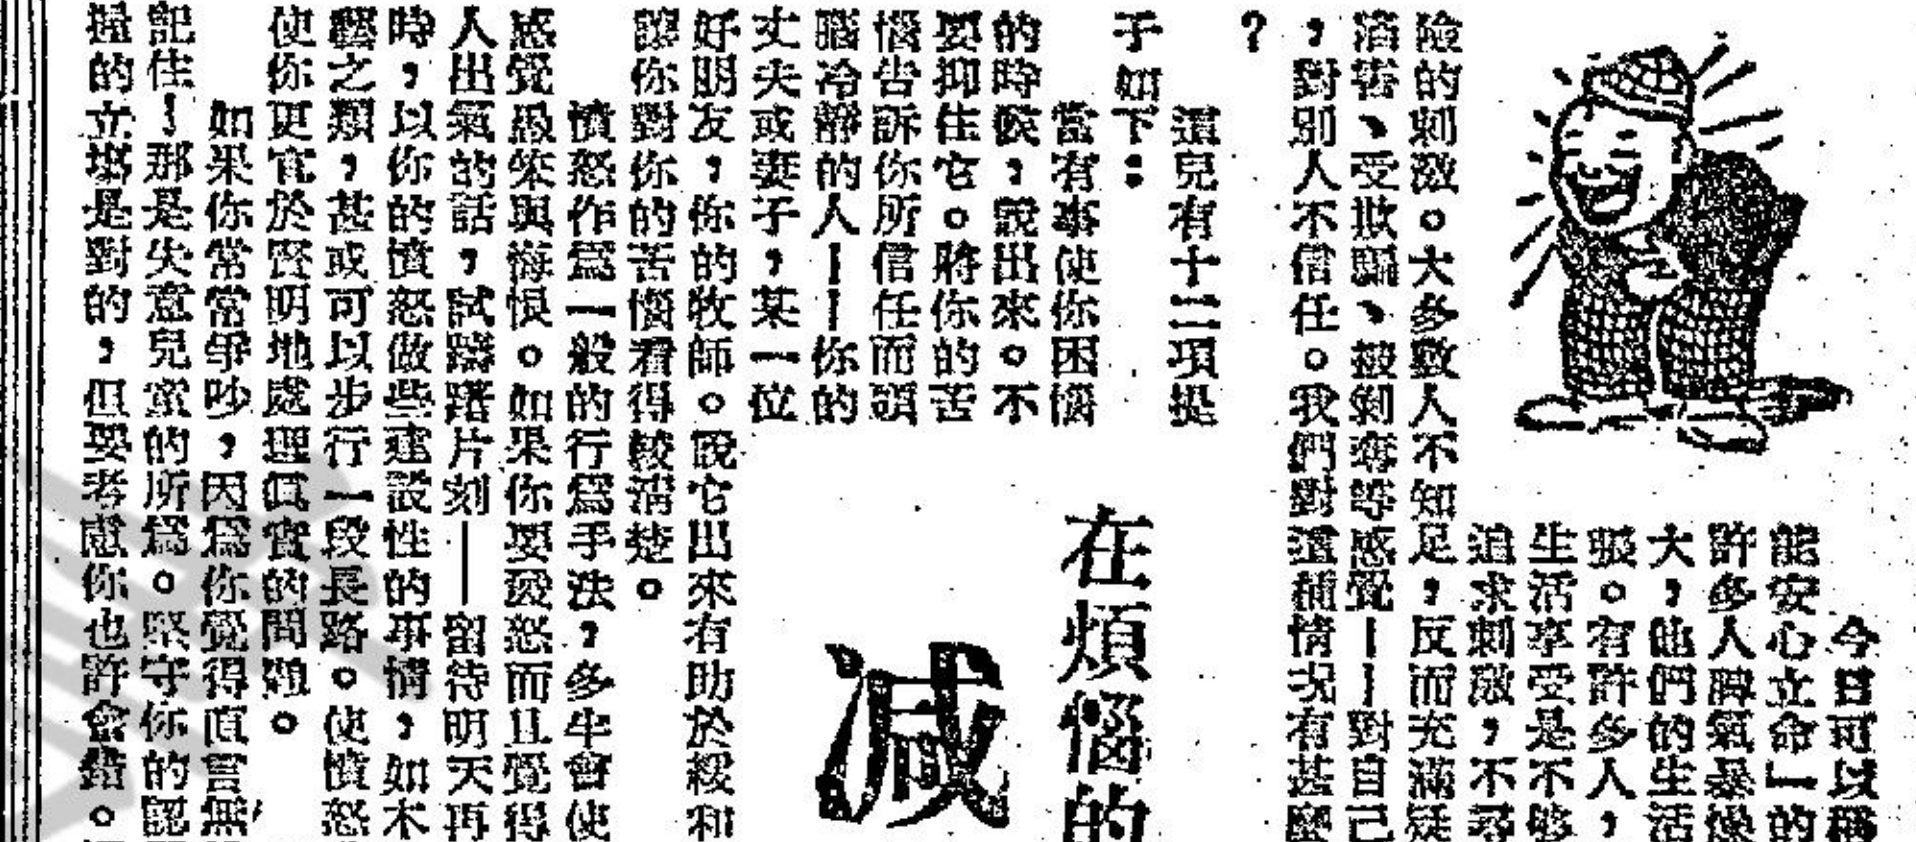 今日可以稱
能安心立命一的
許多人脾氣暴燥
大，他們的生活
張。有許多人，
生活享受是不够
追求刺激，不尋
險的刺激。大多數人不知足，反而充滿疑
、受欺騙、被剝奪等感覺——對自己
，對別人不信任。我們對這種情况有甚麼
？
在煩惱的
減
這兒有十二項提
子如下：
當有事使你困惱
的時候，說出來。不
要抑住它。將你的苦
惱告訴你所信任而頭
腦冷靜的人——你的
丈夫或妻子，某一位
好朋友，你的牧師。說它出來有助於緩和
讓你對你的苦惱看得較清楚。
憤怒作為一般的行為手法，多半會使
感覺愚笨與悔恨。如果你要發怒而且覺得
人出氣的話，試躊躇片刻——留待明天再
時，以你的憤怒做些建設性的事情，如木
藝之類，甚或可以步行一段長路。使憤怒
使你更宜於賢明地處理真實的問題。
如果你常常爭吵，因為你覺得直言無
記住！那是失意兒童的所為。堅守你的認
的立塲是對的，但要考慮你也許會錯。